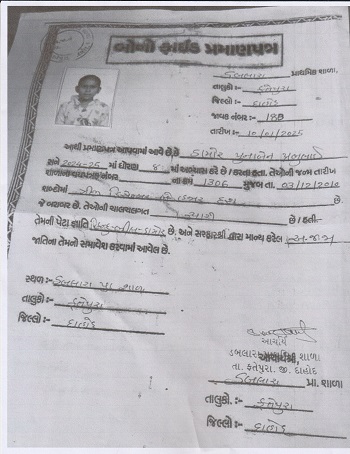 બોનોફાઈડ પ્રમાણપત્ર
ડબલારા પ્રાથમિક શાળા.
તાલુકો :- ફતેપુરા
જિલ્લો :- દાહોદ
જાવક નંબર :- 188
તારીખ :- 10/01/2025
આથી પ્રમાણપત્ર આપવામાં આવે છે કે ડામોર
સને 2024-25 માં ધોરણ 8 માં અભ્યાસ કરે છે / કરતા હતા. તેઓની જન્મ તારીખ
શાળાના વયપત્રક નંબર ના ક્રમાં 1306 મુજબ તા. 03/12/2010
શબ્દોમાં ત્રીજી ડિસેમ્બર બે હજાર દસ છે.
જે બરાબર છે. તેઓની ચાલચલગત સારી છે / હતી.-
તેમની પેટા જાતિ હિન્દુ છે. અને સરકારશ્રી દ્વારા માન્ય કરેલ
જાતિના તેમનો સમાવેશ કરવામાં આવેલ છે.
સ્થળ :- ડબલારા પ્રા. શાળા
તાલુકો :- ફતેપુરા
જિલ્લો :- દાહોદ
આચાર્ય
ડબલારા શાળા
તા. ફતેપુરા. જી. દાહોદ
ડબલારા પ્રા. શાળા
તાલુકો. :- ફતેપુરા
જિલ્લો :- દાહોદ